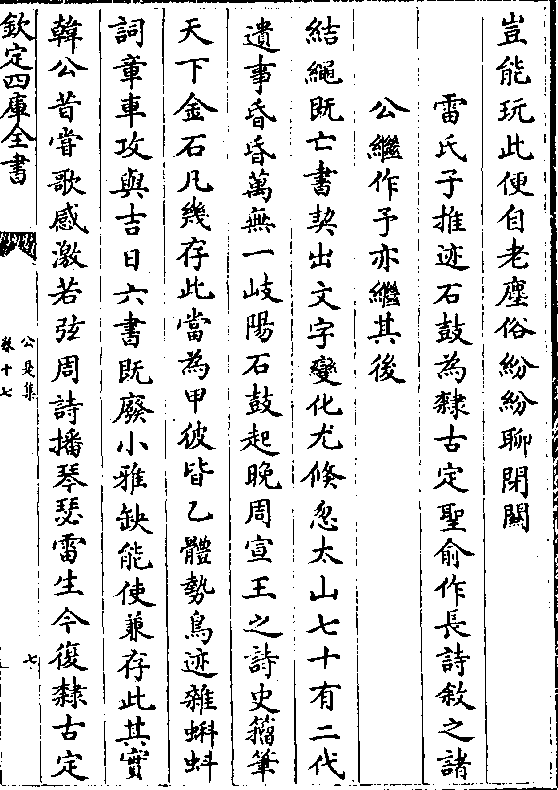 豈能玩此便自老塵俗紛紛聊閉關
雷氏子推迹石鼓為隸古定聖俞作長詩敘之諸
公繼作予亦繼其後
結繩既亡書契出文字變化尤倏忽太山七十有二代
遺事昏昏萬無一岐陽石鼓起晚周宣王之詩史籀筆
天下金石凡幾存此當為甲彼皆乙體勢鳥迹雜蝌蚪
詞章車攻與吉日六書既廢小雅缺能使兼存此其實
韓公昔嘗歌感激若弦周詩播琴瑟雷生今復隸古定
欽定四庫全書
公是集
卷十七
七